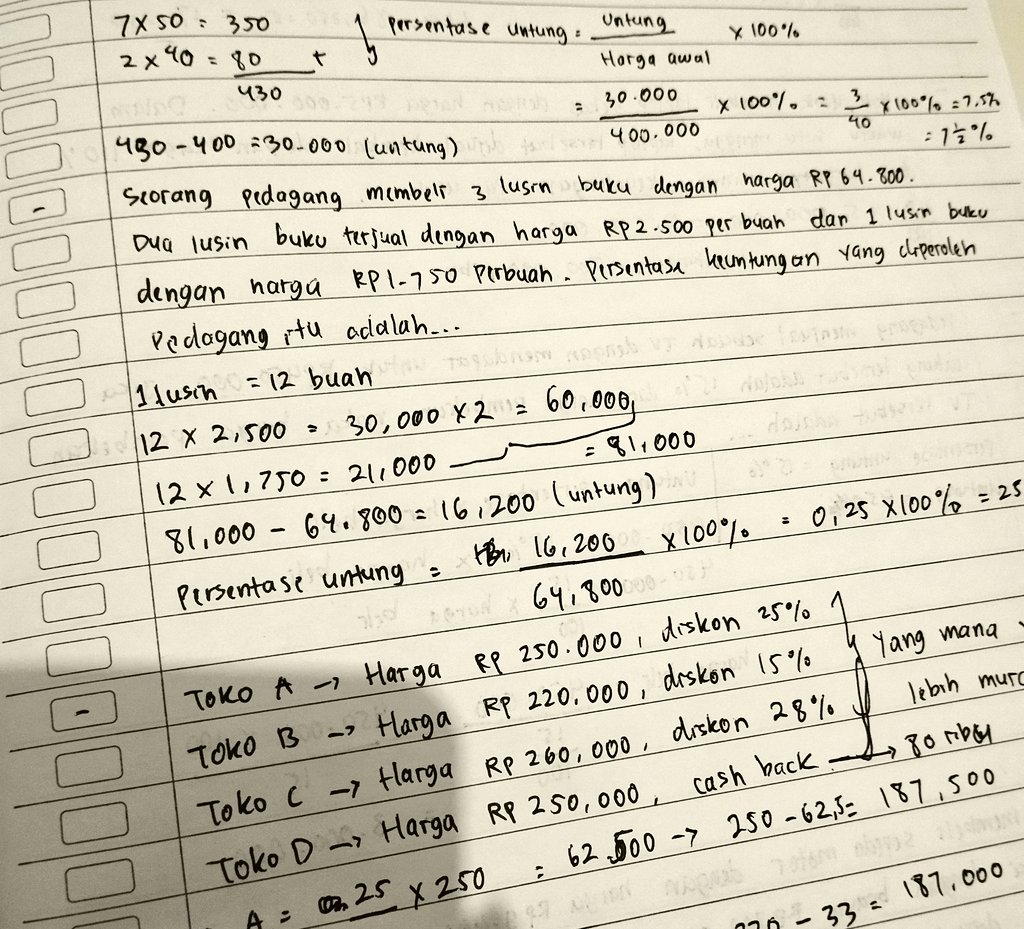 7 x 50 = 350
2 x 40 = 80 +
430
Persentase untung = Untung x 100%
Harga awal
= 30.000 x 100% = 3 x 100% = 7.5%
400.000 40
= 7 1/2 %
430 - 400 = 30.000 (untung)
Seorang pedagang membeli 3 lusin buku dengan harga RP 64.800.
Dua lusin buku terjual dengan harga RP 2.500 per buah dan 1 lusin buku
dengan harga RP 1.750 Perbuah. Persentase keuntungan yang diperoleh
Pedagang itu adalah...
1 lusin = 12 buah
12 x 2,500 = 30,000 x 2 = 60,000
12 x 1,750 = 21,000 = 81,000
81,000 - 64.800 = 16,200 (untung)
Persentase untung = 16,200 x 100% = 0,25 x 100% = 25
64,800
Toko A → Harga RP 250.000, diskon 25%
Toko B → Harga RP 220.000, diskon 15%
Toko C → Harga RP 260,000, diskon 28%
Toko D → Harga RP 250,000, cash back → 80 ribu
Yang mana
lebih
A = 25 x 250 = 62.500 → 250 - 62,5 = 187,500
- 33 = 187,000